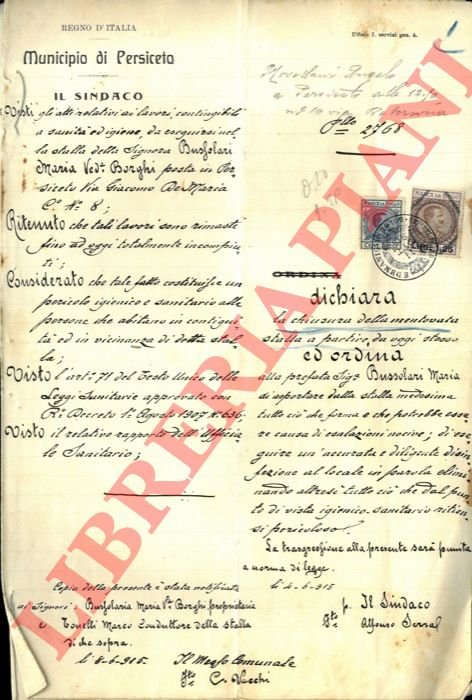 REGNO D'ITALIA
Ufficio I. servizi gen. 4.
1
Municipio di Persiceto
IL SINDACO
Visti gli atti relativi ai lavori, contingibili
a sanità ed igiene, da eseguirsi nel
la stalla della Signora Bussolari
Maria Vedª Borghi posta in Per
siceto Via Giacomo De Maria
Cº Nº 8;
Ritenuto che tali lavori sono rimasti
fino ad oggi totalmente incompiu
ti;
Considerato che tale fatto costituisce un
pericolo igienico e sanitario alle
persone che abitano in contigui
tà ed in vicinanza di detta stal
la;
Visto l'artº 71 del Testo Unico delle
Leggi Sanitarie approvato con
Rº Decreto 1º Agosto 1907 Nº 636;
Visto il relativo rapporto dell'Ufficia
le Sanitario;
Copia della presente è stata notificata
ai Signori: Bussolari Maria Vª Borghi, proprietaria
e Tonelli Marco Conduttore della stalla
di che sopra.
li 8-6-915. Il Messo Comunale
fto C. Vecchi
Angelo
a Persiceto alle
via
2768
MARCA DA BOLLO
MARCA DA BOLLO
Lire 1,25
ORDINA
dichiara
la chiusura della mentovata
stalla a partire da oggi stesso
ed ordina
alla prefata Sigª Bussolari Maria
di asportare dalla stalla medesima
tutto ciò che forma e che potrebbe esse
re causa di esalazioni nocive; di ese
guire un'accurata e diligente disin
fezione al locale in parola elimi
nando altresì tutto ciò che dal pun
to di vista igienico-sanitario ritien
si pericoloso.
La trasgressione alla presente sarà punita
a norma di legge.
li 4-6-915
p. Il Sindaco
fto Alfonso
LIBRERIA PIANI